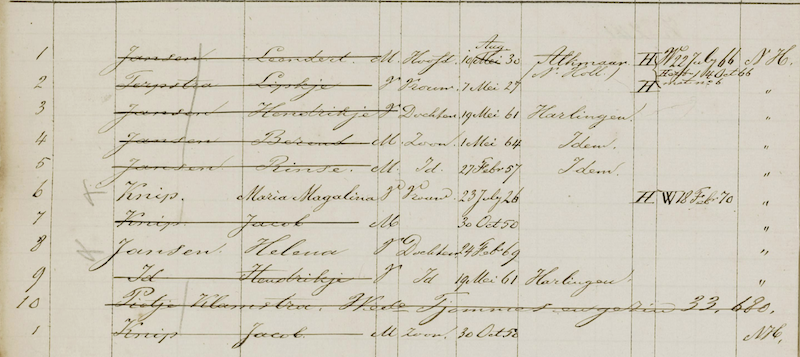 1 Jansen Leendert. M Hoofd. 19 Aug Mei 30 Alkmaar (N. Holl.) H Wr 22 July 66 N H.
2 Terpstra Lijskje V Vrouw. 7 Mei 27 H 14 Oct 66 "
3 Jansen Hendrikje V Dochter 19 Mei 61 Harlingen. "
4 Jansen Berend M Zoon. 1 Mei 64 Idem. "
5 Jansen Rinse. M. Id. 27 Febr 57 Idem. "
6 Knip. Maria Magalina V Vrouw. 23 July 26 H W 18 Febr 70 "
7 Knip. Jacob M 30 Oct 50 "
8 Jansen. Helena V Dochter 24 Feb 69 "
9 Id Hendrikje V Id 19 Mei 61 Harlingen. "
10 Pietje Klamstra. Wede Tjommes en gezin 33, 680.
1 Knip Jacob. M Zoon. 30 Oct 50 NH.